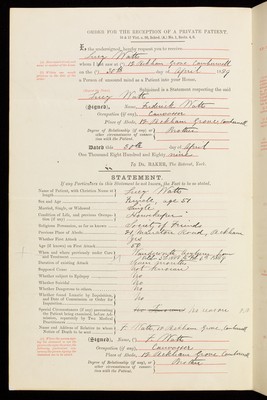 ORDER FOR THE RECEPTION OF A PRIVATE PATIENT.
I, the undersigned, hereby request you to receive
Lucy Watts
whom I saw at 12 Peckham Grove Camberwell
on the 30th day of April 1889
a Person of unsound mind as a Patient into your House.
Subjoined is a Statement respecting the said
Lucy Watts
(Signed), Name, Frederick Watts
Occupation (if any), Canvasser
Place of Abode, 12 Peckham Grove Camberwell
Degree of Relationship (if any) or other circumstances of connection with the Patient. Brother
Dated this 30th day of April
One Thousand Eight Hundred and Eighty nine
To DR. BAKER, The Retreat, York.
STATEMENT.
If any Particulars in this Statement be not known, the Fact to be so stated.
Name of Patient, with Christian Name at length Lucy Watts
Sex and Age Female, age 51
Married, Single, or Widowed Single
Condition of Life, and previous Occupation (if any) Housekeeper
Religious Persuasion, as far as known Society of Friends
Previous Place of Abode Road, Peckham
Whether First Attack Yes
Age (if known) on First Attack
When and where previously under Care and Treatment
Duration of existing Attack months
Supposed Cause Not known
Whether subject to Epilepsy No
Whether Suicidal No
Whether Dangerous to others No
Whether found Lunatic by Inquisition, and Date of Commission or Order for Inquisition No
Special Circumstances (if any) preventing the Patient being examined, before admission, separately by Two Medical Practitioners
Name and Address of Relative to whom Notice of Death to be sent F. Watts, 12 Peckham Grove Camberwell
(Signed), Name, F. Watts
Occupation (if any), Canvasser
Place of Abode, 12 Peckham Grove Camberwell
Degree of Relationship (if any) or other circumstances of connection with the Patient. Brother